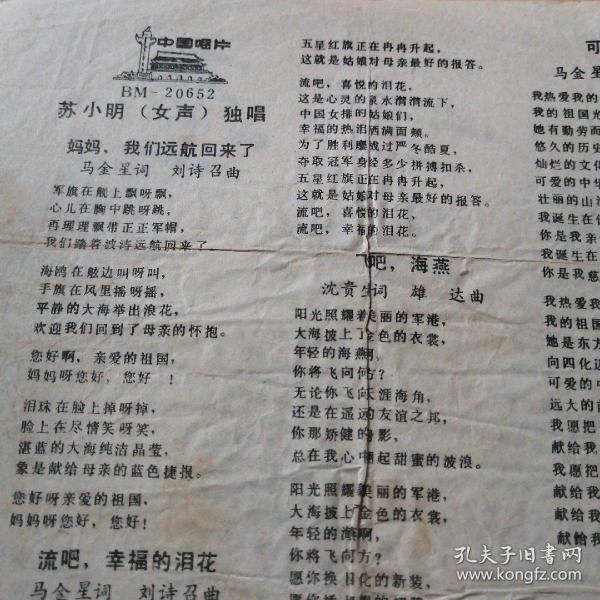 中国唱片
BM-20652
苏小明（女声）独唱
妈妈，我们远航回来了
马金星词 刘诗召曲
军旗在舰上飘呀飘，
心儿在胸中跳呀跳，
再理理飘带正正军帽，
我们踏着波涛远航回来了。
海鸥在舷边叫呀叫，
手旗在风里摇呀摇，
平静的大海举出浪花，
欢迎我们回到了母亲的怀抱。
您好啊，亲爱的祖国，
妈妈呀您好，您好！
泪珠在脸上掉呀掉，
脸上在尽情笑呀笑，
湛蓝的大海纯洁晶莹，
象是献给母亲的蓝色捷报。
您好呀亲爱的祖国，
妈妈呀您好，您好！
流吧，幸福的泪花
马金星词 刘诗召曲
五星红旗正在冉冉升起，
这就是姑娘对母亲最好的报答。
流吧，喜悦的泪花，
这是心灵的泉水潸潸流下，
中国女排的姑娘们，
幸福的热泪洒满面颊。
为了胜利鏖战过严冬酷夏，
夺取冠军身经多少拼搏扣杀，
五星红旗正在冉冉升起，
这就是姑娘对母亲最好的报答。
流吧，喜悦的泪花，
流吧，幸福的泪花。
飞吧，海燕
沈贵 词 雄达曲
阳光照耀着美丽的军港，
大海披上了金色的衣裳，
年轻的海燕啊，
你将飞向何方？
无论你飞向天涯海角，
还是在遥远友谊之邦，
你那矫健的身影，
总在我心中掀起甜蜜的波浪。
阳光照耀着美丽的军港，
大海披上了金色的衣裳，
年轻的海燕啊，
你将飞向何方？
愿你换上 化的新装，
可
马金星
我热爱我的
我的祖国光
她有勤劳而
悠久的历史
灿烂的文化
可爱的中华
壮丽的山河
我诞生在你
你是我亲
我诞生在
你是我慈
我热爱我
我的祖国
她是东方
向四化迈
可爱的中
远大的前
我愿把
献给我
我愿把
献给我
献给我
献给我
孔夫子旧书网
www.kongfz.com